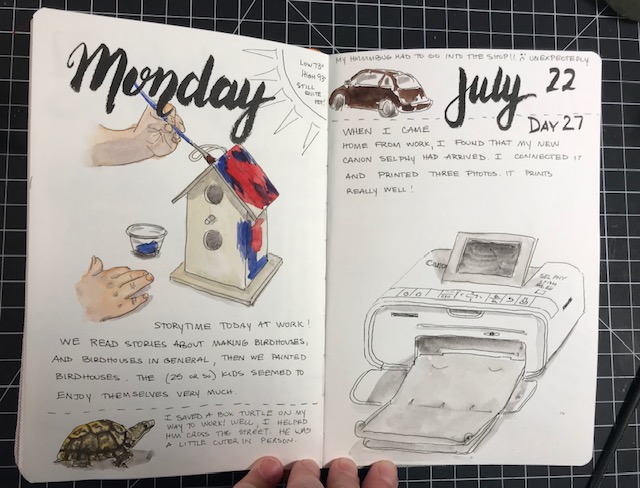 Monday
LOW 73°
HIGH 93°
STILL
QUITE
HOT!
STORYTIME TODAY AT WORK!
WE READ STORIES ABOUT MAKING BIRDHOUSES,
AND BIRDHOUSES IN GENERAL, THEN WE PAINTED
BIRDHOUSES. THE (25 OR SO) KIDS SEEMED TO
ENJOY THEMSELVES VERY MUCH.
I SAVED A BOX TURTLE ON MY
WAY TO WORK! WELL, I HELPED
HIM CROSS THE STREET. HE WAS
A LITTLE CUTER IN PERSON.
MY HUMMBUG HAD TO GO INTO THE SHOP!! :( UNEXPECTEDLY
July 22
DAY 27
WHEN I CAME
HOME FROM WORK, I FOUND THAT MY NEW
CANON SELPHY HAD ARRIVED. I CONNECTED IT
AND PRINTED THREE PHOTOS. IT PRINTS
REALLY WELL!
CANON
SELPHY